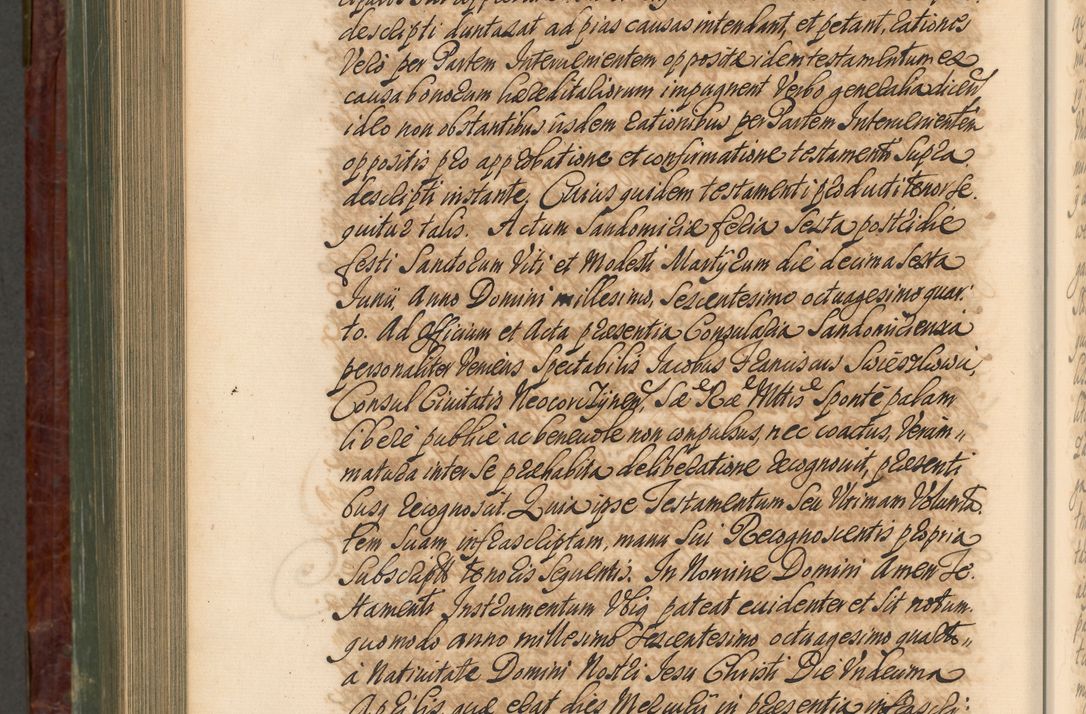 descripti duntaxat ad pias causas intendant, et petant, rationes
Vero per Partem Interuenientem oppositæ idem testamentum ex
causa bonorum hæreditariorum impugnent Verbo generalia dicunt
ideo non obstantibus iisdem rationibus per Partem Interuenientem
oppositis pro approbatione et confirmatione testamenti supra
descripti instante. Cuius quidem testamenti producti tenor se
quitur talis. Actum Sandomiriæ feria Sexta postridie
festi Sanctorum Viti et Modesti Martyrum die decima sexta
Junii Anno Domini millesimo, Sexcentesimo octuagesimo quar:
to. Ad Officium et Acta præsentia Consularia Sandomiriensia
personaliter Veniens Spectabilis Jacobus Franciscus
Consul Ciuitatis Sæ Ræ Mttis Sponte palam
libere publice ac beneuole non compulsus, nec coactus, Verum,,
matura inter se præhabita deliberatione recognouit, præsenti
busq recognoscit. Quia ipse Testamentum Seu Vltimam Volunta
tem Suam infrascriptam, manu Sui Recognoscentis propria
Subscriptt tenoris sequentis. In Nomine Domini Amen Te
stamenti Instrumentum Vbiq pateat euidenter et Sit notum
quomodo anno millesimo Sexcentesimo octuagesimo quarto,,
à Natiuitate Domini Nostri Jesu Christi Die Vndecima
Aprilis, quæ erat dies Mercurii in præsentia infrascri: